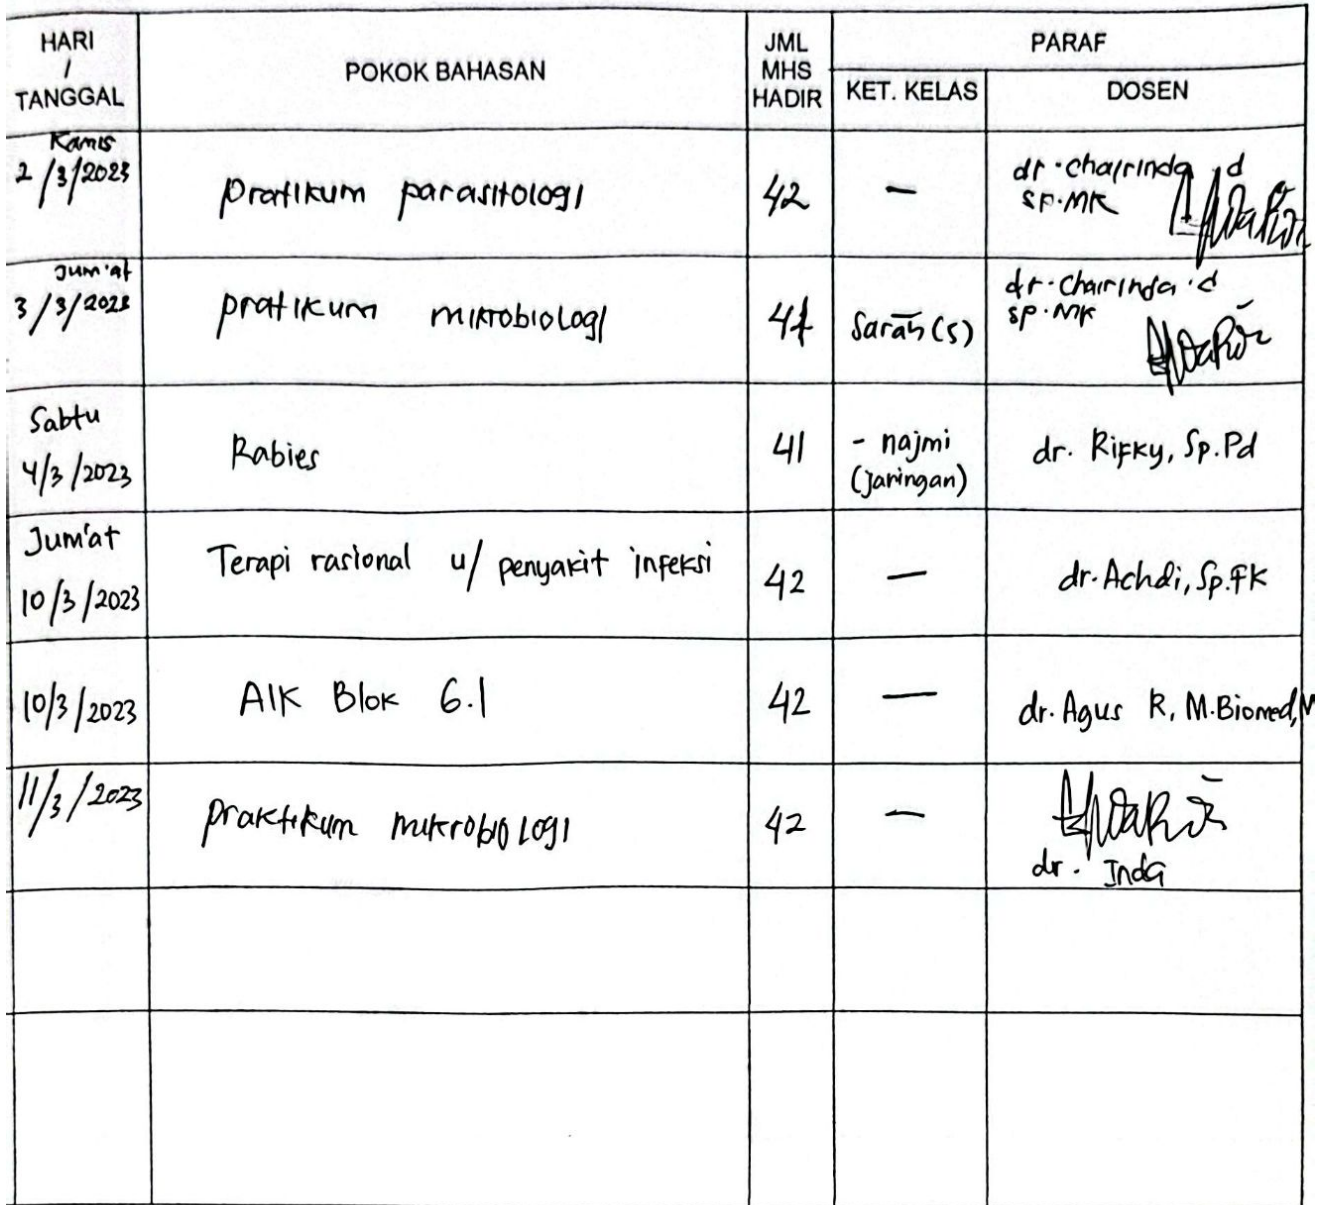 HARI
/
TANGGAL
POKOK BAHASAN
JML
MHS
HADIR
PARAF
KET. KELAS
DOSEN
Kamis
2/3/2023
pratikum parasitologi
42
—
dr. chairinda d
SP.MK
Jum'at
3/3/2023
pratikum mikrobiologi
41
Sarah (s)
dr. Chairinda d
SP.MK
Sabtu
4/3/2023
Rabies
41
- najmi
(jaringan)
dr. Rifky, Sp.Pd
Jum'at
10/3/2023
Terapi rasional u/ penyakit infeksi
42
—
dr. Achdi, Sp.FK
10/3/2023
AIK Blok 6.1
42
—
dr. Agus R, M.Biomed, M
11/3/2023
praktikum mikrobiologi
42
—
dr. Inda